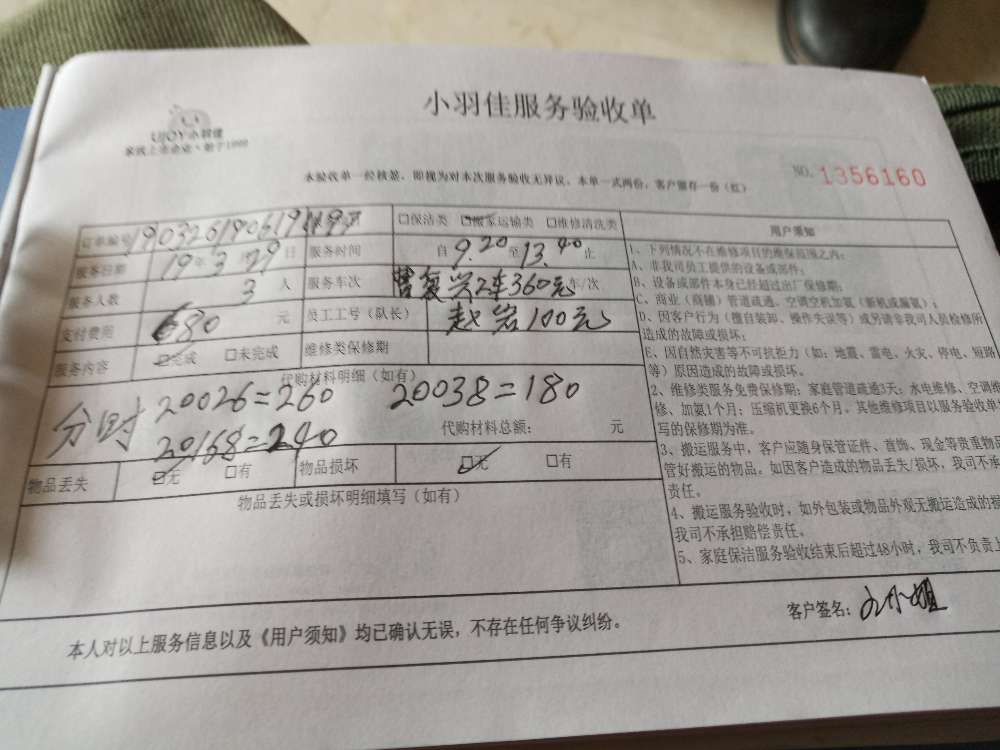 小羽佳服务验收单
UJOY小羽佳
本验收单一经核签,即视为对本次服务验收无异议。本单一式两份,客户留存一份(红)
NO. 1356160
订单编号 190326190619 □保洁类 ☑搬家运输类 □维修清洗类 用户须知
服务日期 19年3月29日 服务时间 自9.20至13.40止
服务人数 3人 服务车次 曹复兴2车360元车/次
支付费用 680元 员工工号(队长) 赵岩100元
服务内容 ☑完成 □未完成 维修类保修期
代购材料明细(如有)
分时 20026=260 20038=180
20168=240 代购材料总额: 元
物品丢失 ☑无 □有 物品损坏 ☑无 □有
物品丢失或损坏明细填写(如有)
1、下列情况不在维修项目的维保范围之内:
A、非我司员工提供的设备或部件;
B、设备或部件本身已经超过出厂保修期;
C、商业(商铺)管道疏通、空调空机加氨(新机或漏氨);
D、因客户行为(擅自装卸、操作失误等)或另请非我司人员检修所
造成的故障或损坏;
E、因自然灾害等不可抗拒力(如:地震、雷电、火灾、停电、短路
等)原因造成的故障或损坏。
2、维修类服务免费保修期:家庭管道疏通3天;水电维修、空调维
修、加氨1个月;压缩机更换6个月。其他维修项目以服务验收单填
写的保修期为准。
3、搬运服务中,客户应随身保管证件、首饰、现金等贵重物品
管好搬运的物品。如因客户造成的物品丢失/损坏,我司不承
责任。
4、搬运服务验收时,如外包装或物品外观无搬运造成的损
我司不承担赔偿责任。
5、家庭保洁服务验收结束后超过48小时,我司不负责上
本人对以上服务信息以及《用户须知》均已确认无误,不存在任何争议纠纷。
客户签名: 小姐